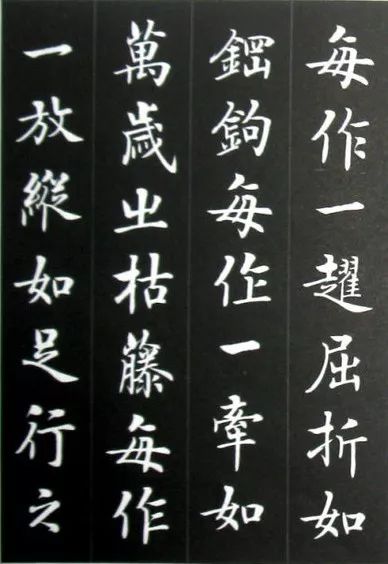 每作一趯屈折如
鋼鉤每作一牽如
萬歲出枯藤每作
一放縱如足行之